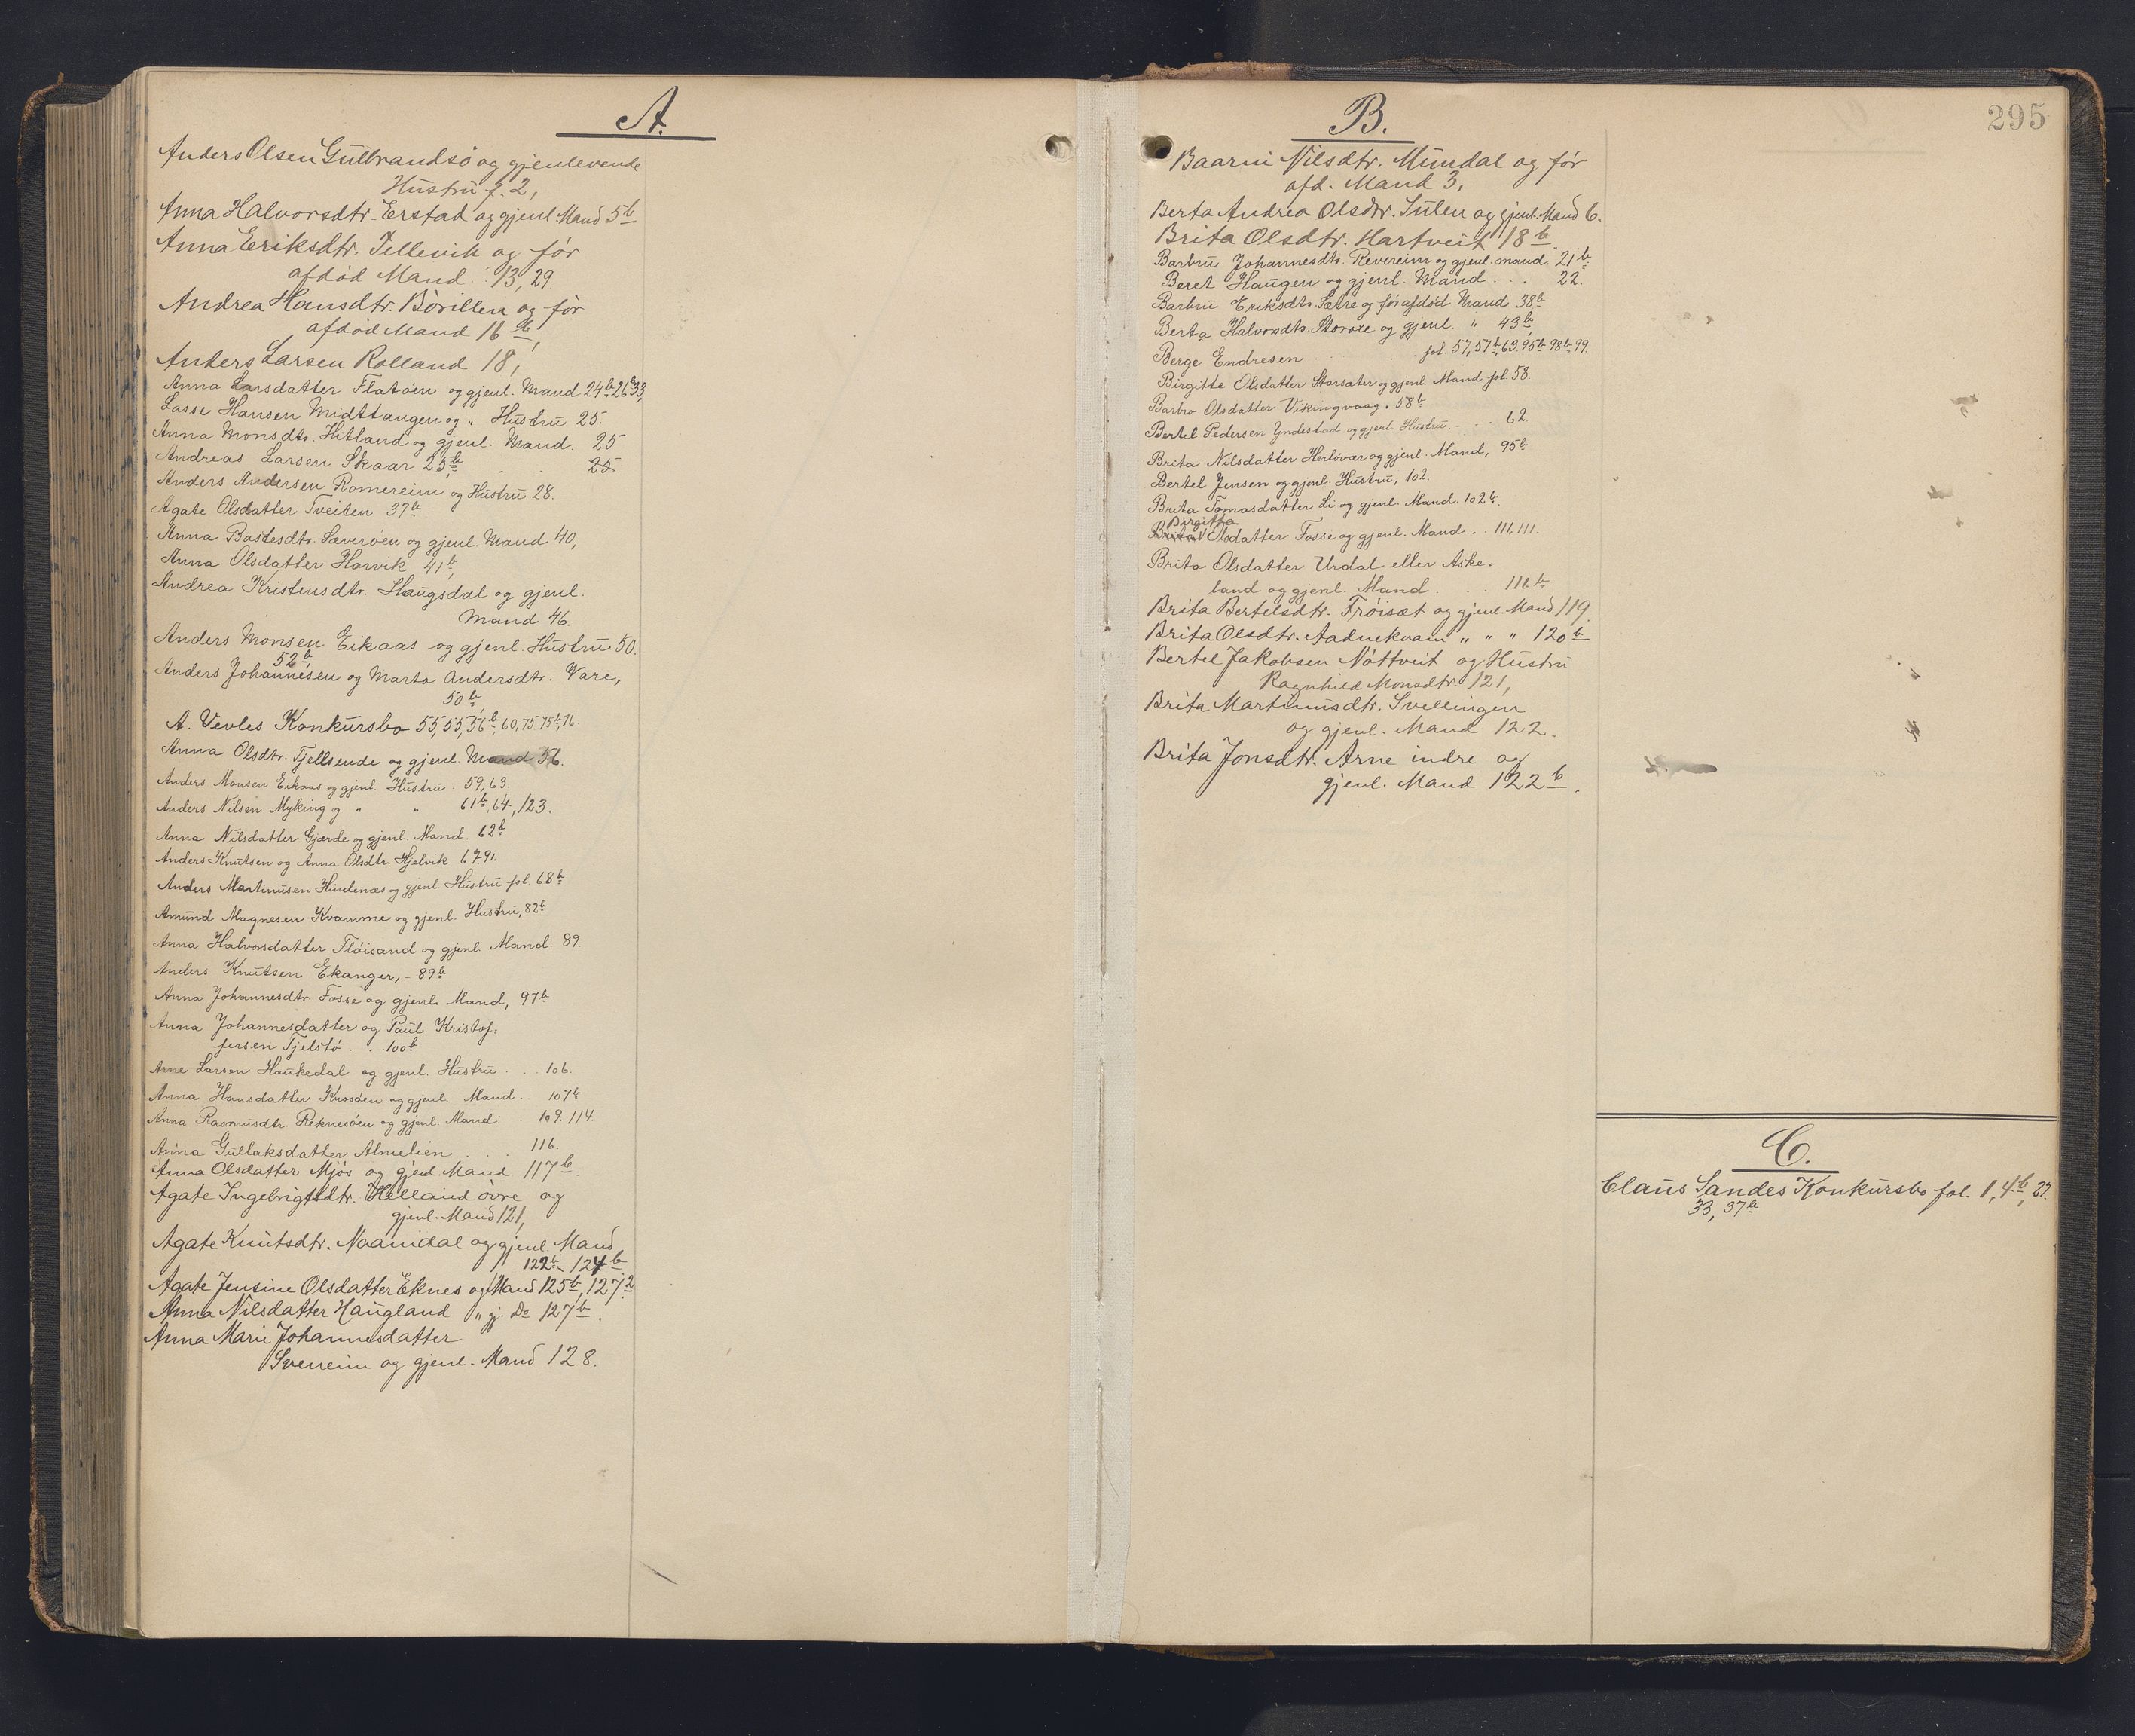 A.
Anders Olsen Gulbrandsö og gjenlevende
Hustru f. 2,
Anna Halvorsdtr. Erstad og gjenl. Mand 5b
Anna Eriksdtr. Tellevik og för
afdöd Mand 13, 29
Andrea Hansdtr. Börillen og för
afdöd Mand 16b,
Anders Larsen Rolland 18,
Anna Larsdatter Flatöen og gjenl. Mand 24b, 26b, 33,
Lasse Hansen Midttangen og „ Hustru 25.
Anna Monsdtr. Hitland og gjenl. Mand. 25
Andreas Larsen Skaar 25b, . . 25
Anders Andersen Romereim og Hustru 28.
Agate Olsdatter Tveiten 37b
Anna Bastesdtr. Sæveröen og gjenl. Mand 40,
Anna Olsdatter Horvik 41b,
Andrea Kristensdtr. Haugsdal og gjenl.
Mand 46.
Anders Monsen Eikaas og gjenl. Hustru 50.
52b,
Anders Johannesen og Marta Andersdtr. Vare,
50b,
A. Vevles Konkursbo 55, 55, 56b, 60, 75. 75b, 76
Anna Olsdtr. Tjellsende og gjenl. Mand 56.
Anders Monsen Eikaas og gjenl. Hustru . 59, 63.
Anders Nilsen Myking og „ „ 61b, 64, 123.
Anna Nilsdatter Gjærde og gjenl. Mand. 62b
Anders Knutsen og Anna Olsdtr. Hjelvik 67. 91.
Anders Martinusen Hindenæs og gjenl. Hustru fol. 68b
Amund Magnesen Kvamme og gjenl. Hustru, 82b
Anna Halvorsdatter Flöisand og gjenl. Mand. 89.
Anders Knutsen Ekanger, - 89b
Anna Johannesdtr. Fosse og gjenl. Mand, 97b
Anna Johannesdatter og Paul Kristof-
fersen Tjelstö . . 100b
Arne Larsen Haukedal og gjenl. Hustru . . 106.
Anna Hansdatter Krossöen og gjenl. Mand. 107b
Anna Rasmusdtr. Reknesöen og gjenl. Mand. . 109. 114.
Anna Gullaksdatter Almelien . . . 116.
Anna Olsdatter Mjös og gjenl. Mand 117b.
Agate Ingebrigtsdtr. Helland övre og
gjenl. Mand 121,
Agate Knutsdtr. Naamdal og gjenl. Mand
122b, 124b
Agate Jensine Olsdatter Eknes og Mand 125b, 127a
Anna Nilsdatter Haugland „ gj. Do 127b.
Anna Marie Johannesdatter
Svereim og gjenl. Mand 128.
B.
Baarni Nilsdtr. Mundal og för
afd. Mand 3,
Berta Andrea Olsdtr. Sulen og gjenl. Mand 6.
Brita Olsdtr. Hartveit 18b
Barbru Johannesdtr. Revereim og gjenl. mand. 21b
Beret Haugen og gjenl. Mand . . . 22.
Barbru Eriksdtr. Sætre og för afdöd Mand 38b
Berta Halvorsdtr. Storoxe og gjenl. „ 43b,
Berge Endresen . . . fol. 57, 57b, 63. 95b 98b. 99.
Birgitte Olsdatter Storsæter og gjenl. Mand fol. 58.
Barbro Olsdatter Vikingvaag. 58b
Bertel Pedersen Yndestad og gjenl. Hustru. . . . 62.
Brita Nilsdatter Herlövær og gjenl. Mand, 95b
Bertel Jensen og gjenl. Hustru, 102.
Brita Tomasdatter Li og gjenl. Mand. 102b.
Birgitha
Olsdatter Fosse og gjenl. Mand . . 111. 111.
Brita Olsdatter Urdal eller Aske-
land og gjenl. Mand . . . 116b
Brita Bertelsdtr. Fröiset og gjenl. Mand 119.
Brita Olsdtr. Aadnekvam „ „ „ 120b
Bertel Jakobsen Nöttveit og Hustru
Ragnhild Monsdtr. 121,
Brita Martinusdtr. Svellingen
og gjenl. Mand 122.
Brita Jonsdtr. Arne indre og
gjenl. Mand 122b.
295
C.
Claus Sandes Konkursbo fol. 1, 4b, 27.
33, 37b